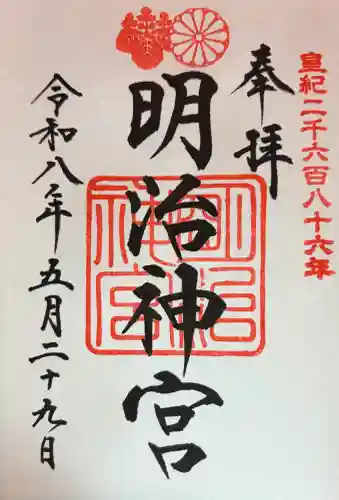 皇紀二千六百八十六年
奉拝
明治神宮
令和八年五月二十九日
明治神宮